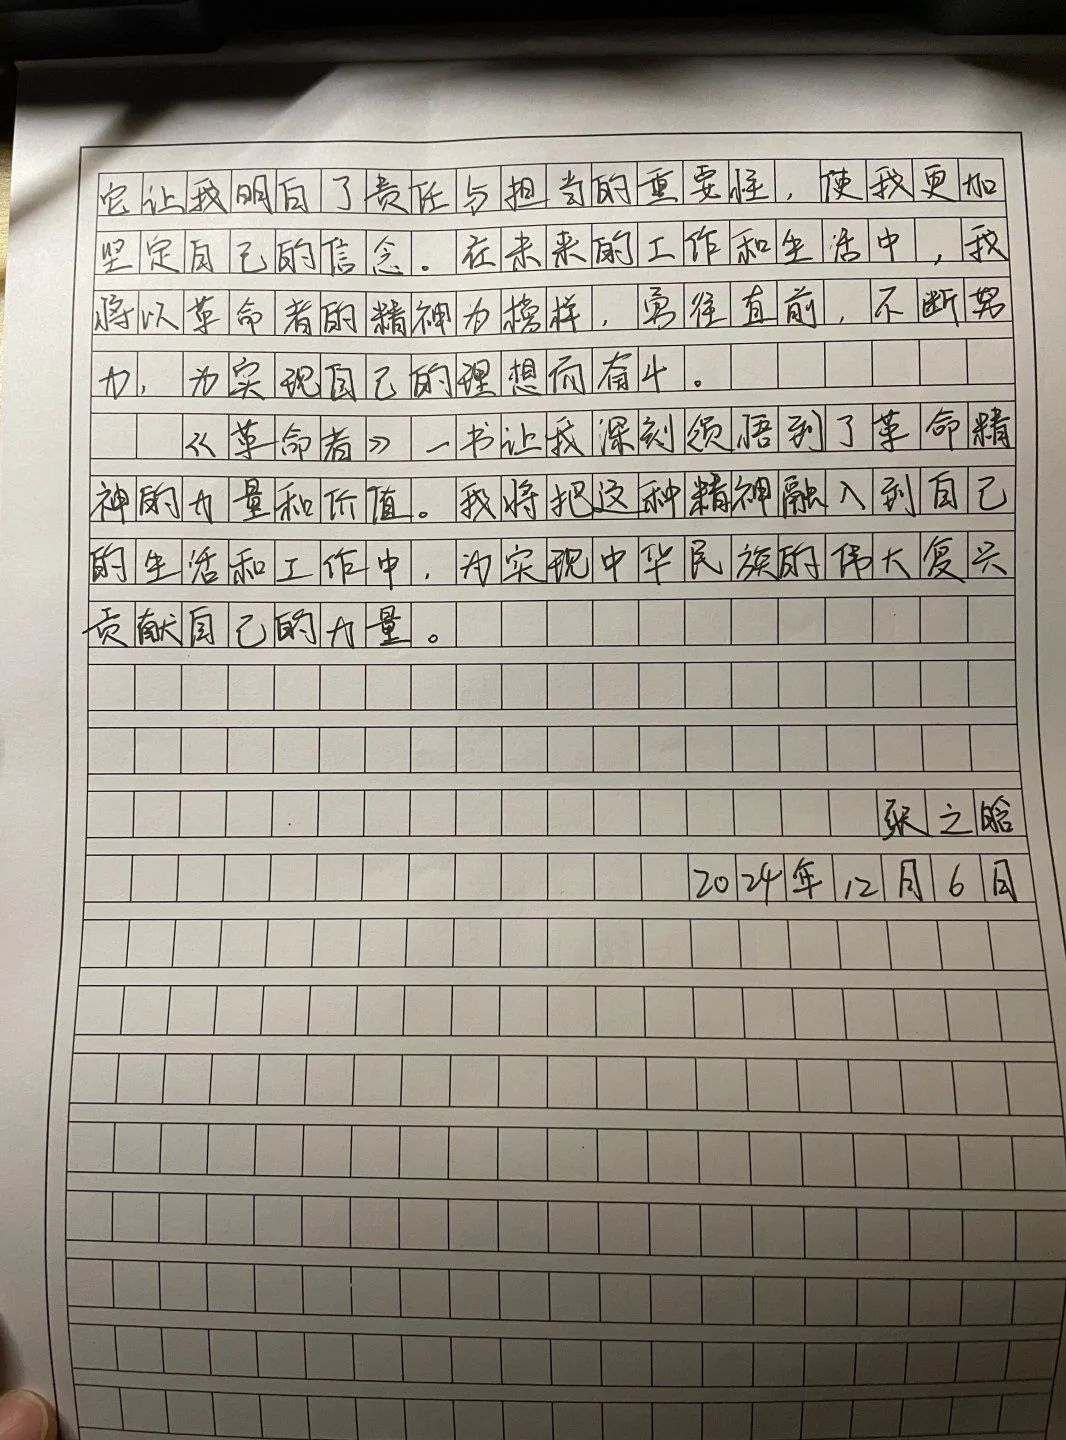 它让我明白了责任与担当的重要性，使我更加
坚定自己的信念。在未来的工作和生活中，我
将以革命者的精神为榜样，勇往直前，不断努
力，为实现自己的理想而奋斗。
《革命者》一书让我深刻领悟到了革命精
神的力量和价值。我将把这种精神融入到自己
的生活和工作中，为实现中华民族的伟大复兴
贡献自己的力量。
张之晗
2024年12月6日